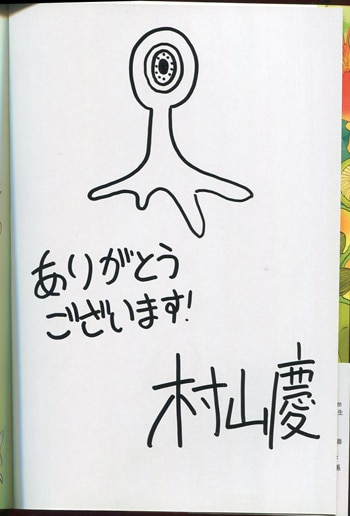 ありがとう
ございます!
村山慶